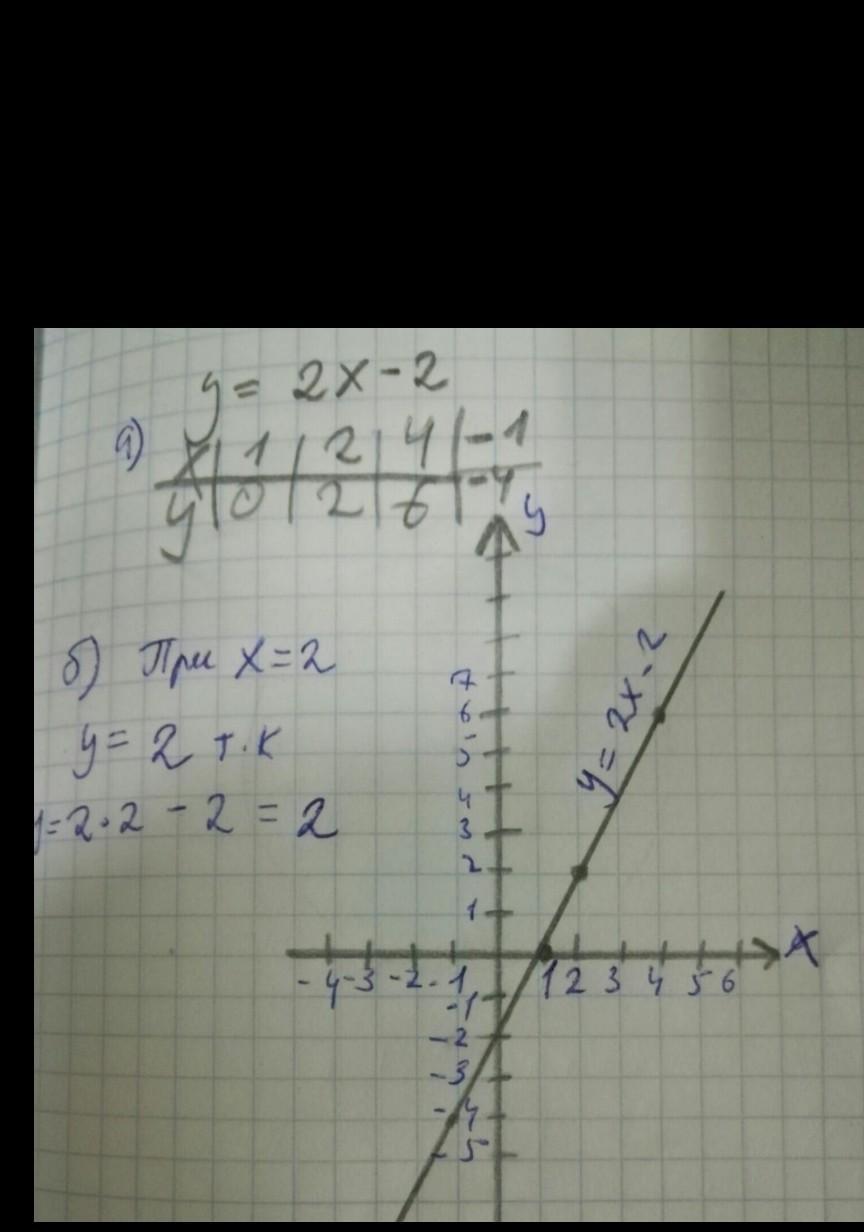 y = 2x - 2
а) x | 1 | 2 | 4 | -1
y | 0 | 2 | 6 | -4
y
б) При x = 2
y = 2 т.к
y = 2·2 - 2 = 2
y = 2x - 2
7
6
5
4
3
2
1
x
-4 -3 -2 -1 1 2 3 4 5 6
-1
-2
-3
-4
-5